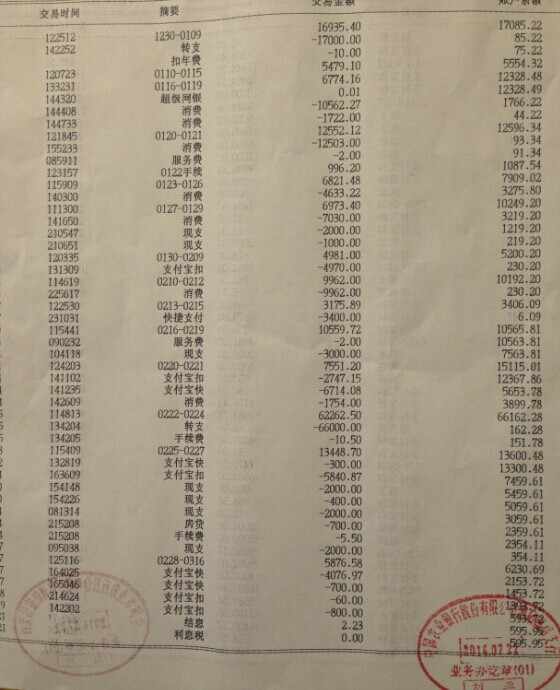 交易时间 摘要 交易金额 账户余额
122512 1230-0109 16935.40 17085.22
142252 转支 -17000.00 85.22
扣年费 -10.00 75.22
120723 0110-0115 5479.10 5554.32
133231 0116-0119 6774.16 12328.48
144320 超级网银 0.01 12328.49
144408 消费 -10562.27 1766.22
144733 消费 -1722.00 44.22
121845 0120-0121 12552.12 12596.34
155233 消费 -12503.00 93.34
085911 服务费 -2.00 91.34
123157 0122手续 996.20 1087.54
115909 0123-0126 6821.48 7909.02
140300 消费 -4633.22 3275.80
111300 0127-0129 6973.40 10249.20
141650 消费 -7030.00 3219.20
210547 现支 -2000.00 1219.20
210651 现支 -1000.00 219.20
120335 0130-0209 4981.00 5200.20
131309 支付宝扣 -4970.00 230.20
114619 0210-0212 9962.00 10192.20
225617 消费 -9962.00 230.20
122530 0213-0215 3175.89 3406.09
231031 快捷支付 -3400.00 6.09
115441 0216-0219 10559.72 10565.81
090232 服务费 -2.00 10563.81
104118 现支 -3000.00 7563.81
124203 0220-0221 7551.20 15115.01
141102 支付宝扣 -2747.15 12367.86
141235 支付宝快 -6714.08 5653.78
142609 消费 -1754.00 3899.78
114813 0222-0224 62262.50 66162.28
134204 转支 -66000.00 162.28
134205 手续费 -10.50 151.78
115409 0225-0227 13448.70 13600.48
132819 支付宝快 -300.00 13300.48
163609 支付宝扣 -5840.87 7459.61
154148 现支 -2000.00 5459.61
154226 现支 -400.00 5059.61
081314 现支 -2000.00 3059.61
215208 房贷 -700.00 2359.61
215208 手续费 -5.50 2354.11
095038 现支 -2000.00 354.11
125116 0228-0316 5876.58 6230.69
164025 支付宝快 -4076.97 2153.72
165046 支付宝快 -700.00 1453.72
214624 支付宝扣 -60.00 1393.72
142202 支付宝扣 -800.00 593.72
结息 2.23 595.95
利息税 0.00 595.95
业务办讫章(01)